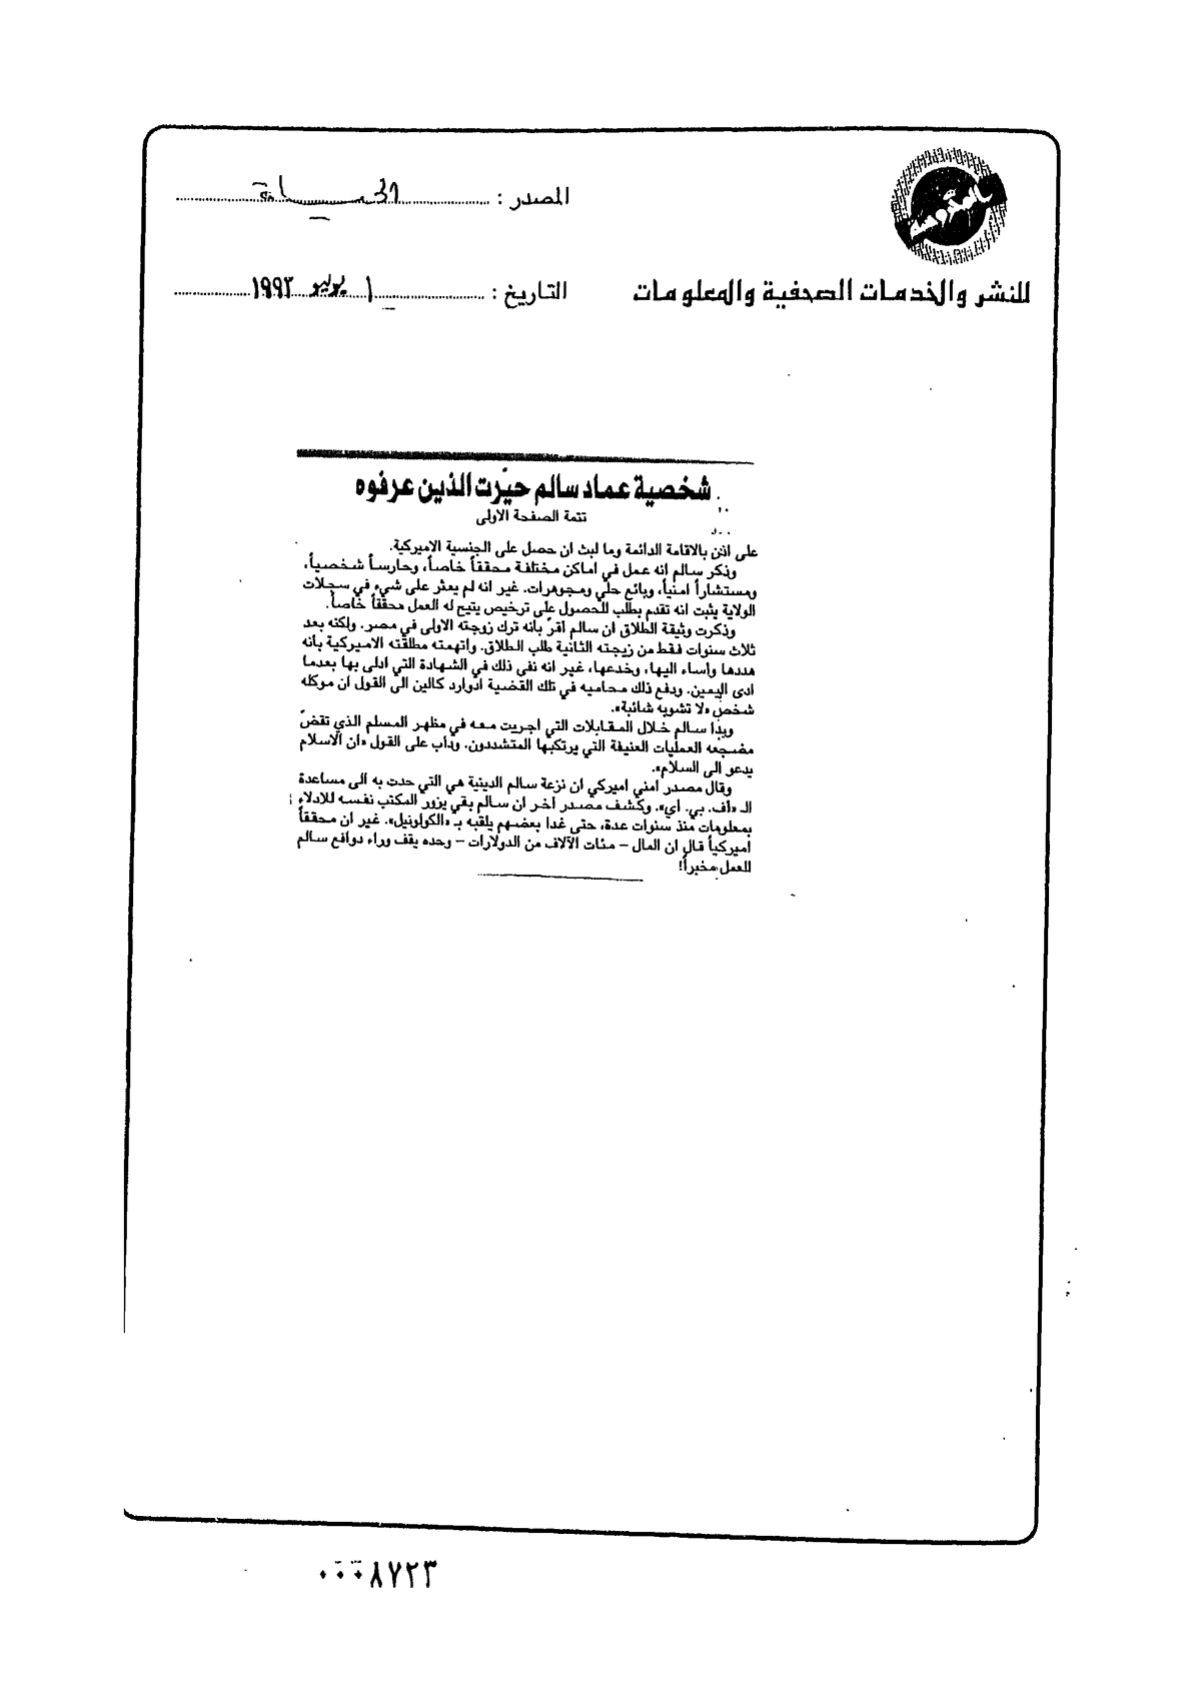 المصدر : الحياة
للنشر والخدمات الصحفية والمعلومات
التاريخ : ١ يوليو ١٩٩٣
شخصية عماد سالم حيّرت الذين عرفوه
تتمة الصفحة الاولى
على اذن بالاقامة الدائمة وما لبث ان حصل على الجنسية الاميركية.
وذكر سالم انه عمل في اماكن مختلفة محققاً خاصاً، وحارساً شخصياً،
ومستشاراً امنياً، وبائع حلي ومجوهرات. غير انه لم يعثر على شيء في سجلات
الولاية يثبت انه تقدم بطلب للحصول على ترخيص يتيح له العمل محققاً خاصاً.
وذكرت وثيقة الطلاق ان سالم اقرّ بانه ترك زوجته الاولى في مصر. ولكنه بعد
ثلاث سنوات فقط من زيجته الثانية طلب الطلاق. واتهمته مطلقته الاميركية بانه
هددها واساء اليها، وخدعها، غير انه نفى ذلك في الشهادة التي ادلى بها بعدما
ادى اليمين. ودفع ذلك محاميه في تلك القضية ادوارد كالين الى القول ان موكله
شخص «لا تشوبه شائبة».
وبدا سالم خلال المقابلات التي اجريت معه في مظهر المسلم الذي تقضّ
مضجعه العمليات العنيفة التي يرتكبها المتشددون. وداب على القول «ان الاسلام
يدعو الى السلام».
وقال مصدر امني اميركي ان نزعة سالم الدينية هي التي حدت به الى مساعدة
الـ «اف. بي. اي». وكشف مصدر آخر ان سالم بقي يزور المكتب نفسه للادلاء
بمعلومات منذ سنوات عدة، حتى غدا بعضهم يلقبه بـ «الكولونيل». غير ان محققاً
اميركياً قال ان المال – مئات الآلاف من الدولارات – وحده يقف وراء دوافع سالم
للعمل مخبراً!
٠٠٠٨٧٢٣